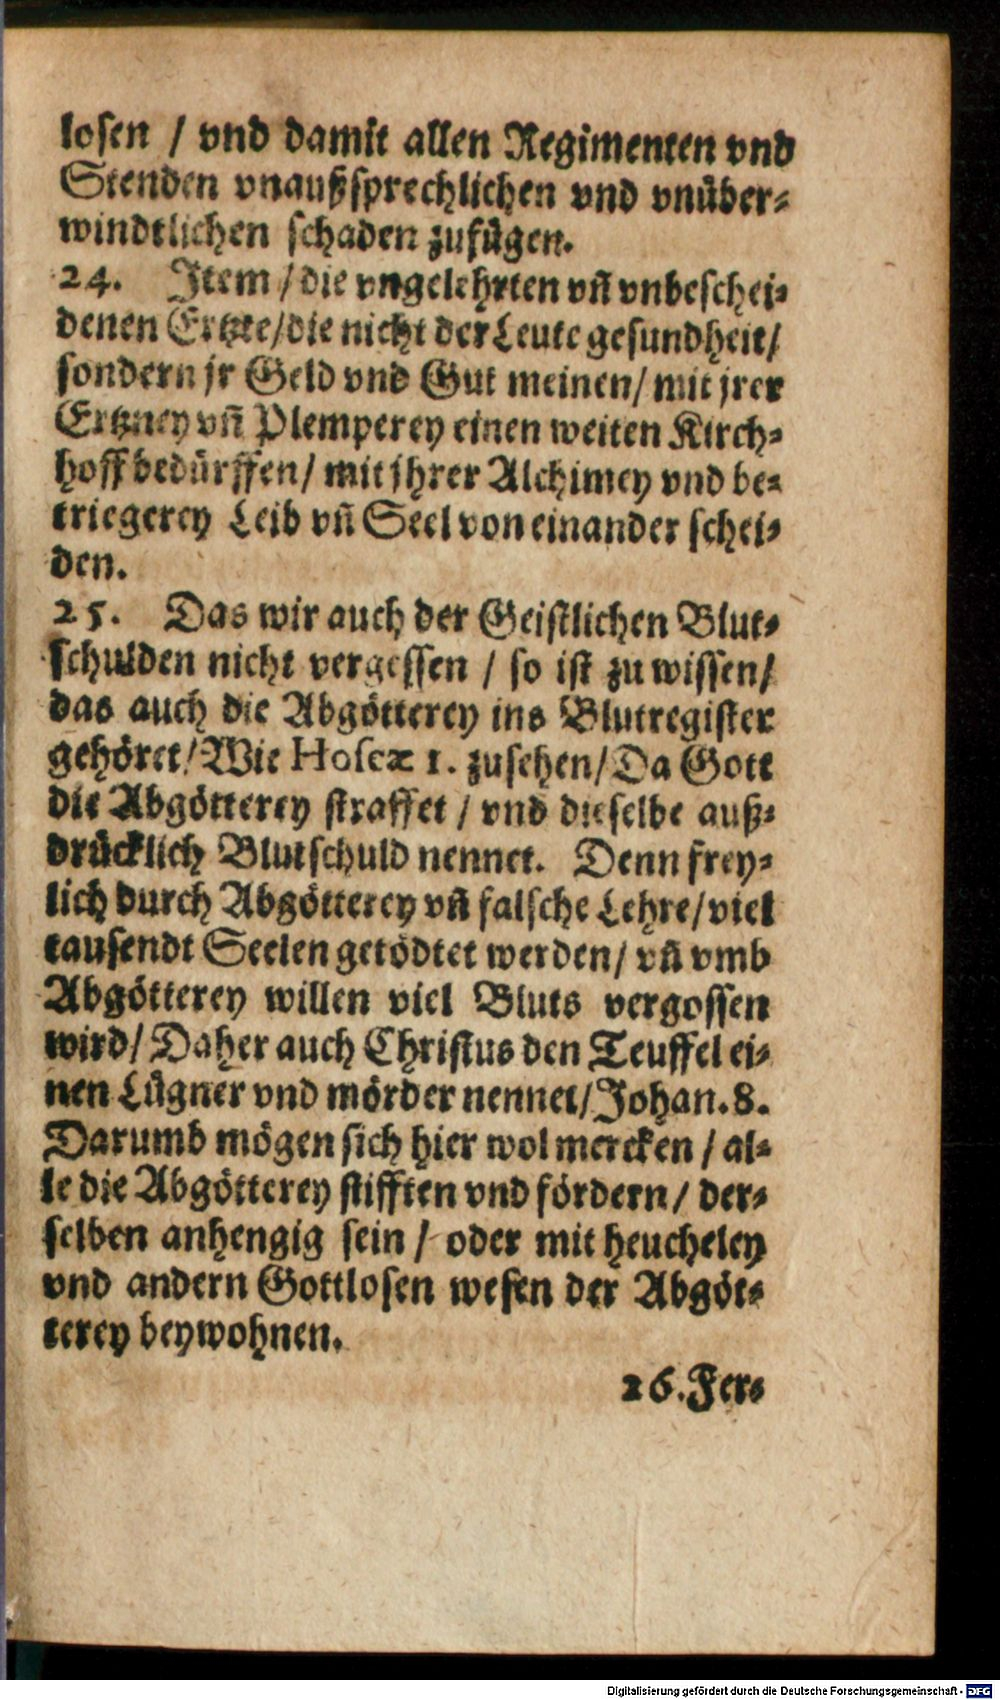 losen / vnd damit allen Regimenten vnd
Stenden vnaußsprechlichen vnd vnüber-
windtlichen schaden zufügen.
24. Item / die vngelehrten vñ vnbeschei-
denen Ertzte / die nicht der Leute gesundheit /
sondern jr Geld vnd Gut meinen / mit jrer
Ertzney vñ Plemperey einen weiten Kirch-
hoff bedürffen / mit jhrer Alchimey vnd be-
triegerey Leib vñ Seel von einander schei-
den.
25. Das wir auch der Geistlichen Blut-
schulden nicht vergessen / so ist zu wissen /
das auch die Abgötterey ins Blutregister
gehöret / Wie Hoseæ 1. zusehen / Da Gott
die Abgötterey straffet / vnd dieselbe auß-
drücklich Blutschuld nennet. Denn frey-
lich durch Abgötterey vñ falsche Lehre / viel
tausendt Seelen getödtet werden / vñ vmb
Abgötterey willen viel Bluts vergossen
wird / Daher auch Christus den Teuffel ei-
nen Lügner vnd mörder nennet / Johan. 8.
Darumb mögen sich hier wol mercken / al-
le die Abgötterey stifften vnd fördern / der-
selben anhengig sein / oder mit heucheley
vnd andern Gottlosen wesen der Abgöt-
terey beywohnen.
26. Fer-
Digitalisierung gefördert durch die Deutsche Forschungsgemeinschaft - DFG